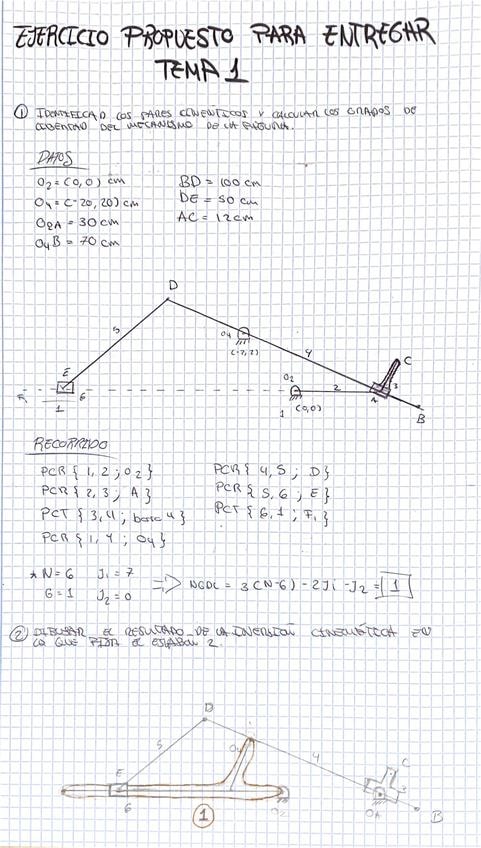 EJERCICIO PROPUESTO PARA ENTREGAR
TEMA 1
① IDENTIFICAD LOS PARES CINEMÁTICOS Y CALCULAR LOS GRADOS DE
LIBERTAD DEL MECANISMO DE LA FIGURA.
DATOS
O2 = (0,0) cm
O4 = (-20, 20) cm
O2A = 30 cm
O4B = 70 cm
BD = 100 cm
DE = 50 cm
AC = 12 cm
D
5
O4
(-2,2)
4
C
E
O2
2
3
6
1
1
(0,0)
A
B
RECORRIDO
PCR { 1, 2 ; O2 }
PCR { 2, 3 ; A }
PCT { 3, 4 ; barra 4 }
PCR { 1, 4 ; O4 }
PCR { 4, 5 ; D }
PCR { 5, 6 ; E }
PCT { 6, 1 ; F1 }
* N = 6 J1 = 7
G = 1 J2 = 0
=> NGDL = 3(N-6) - 2J1 - J2 = 1
② DIBUJAR EL RESULTADO DE LA INVERSIÓN CINEMÁTICA EN
LA QUE FIJA EL ESLABÓN 2.
D
5
O4
4
C
E
3
6
1
O2
OA
B